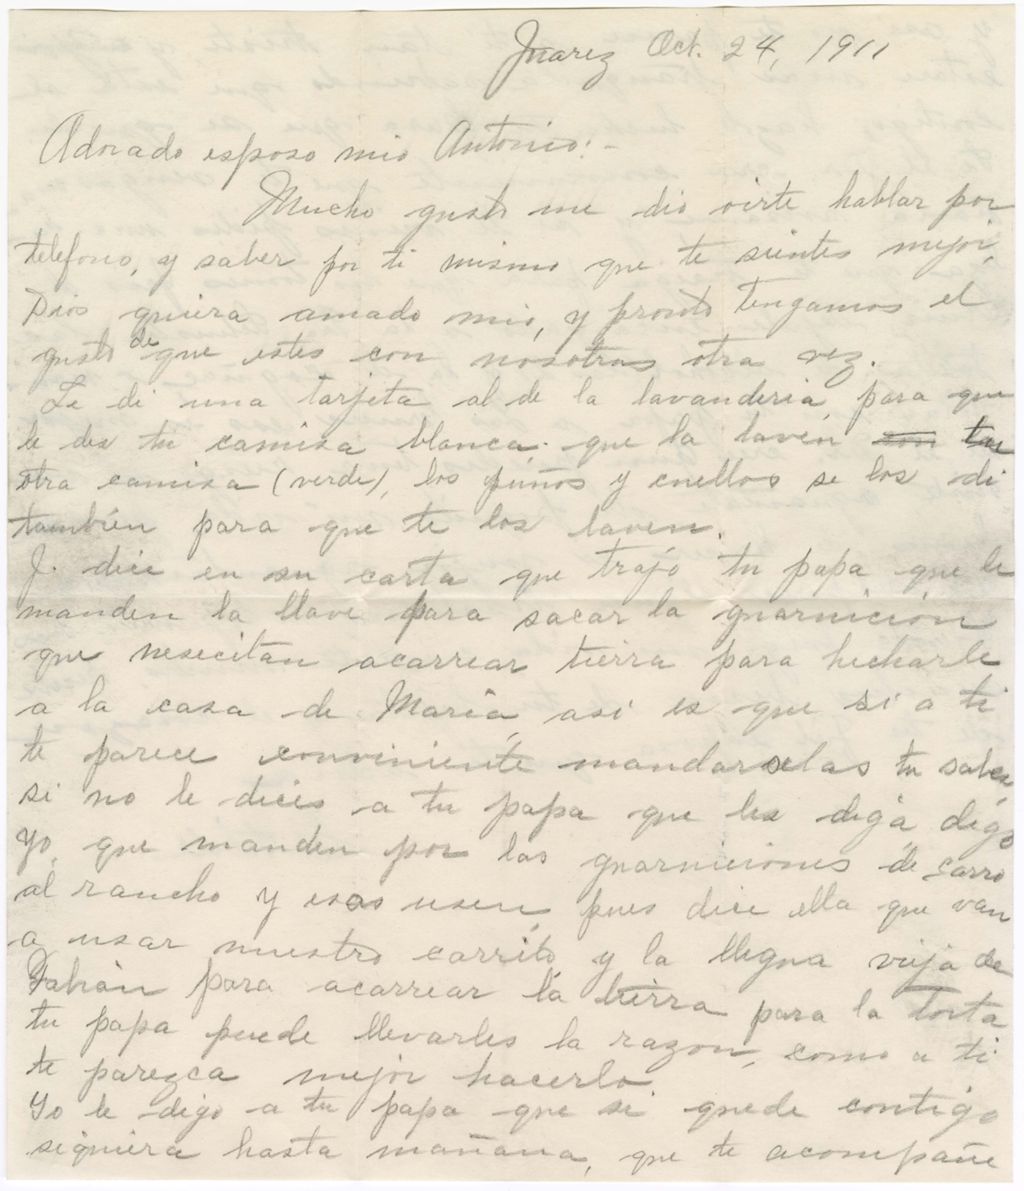 Juarez Oct. 24, 1911
Adorado esposo mio Antonio:-
Mucho gusto me dio oirte hablar por
telefono, y saber por ti mismo que te sientes mejor,
Dios quiera amado mio, y pronto tengamos el
gusto de que estes con nosotras otra vez.
Le di una tarjeta al de la lavanderia, para que
le des tu camisa blanca que la laven con tu
otra camisa (verde), los puños y cuellos se los di
también para que te los laven.
J. dice en su carta que trajó tu papa que le
manden la llave para sacar la guarnición
que nesecitan acarrear tierra para hecharle
a la casa de Maria, asi es que si a ti
te parece conviniente mandarselas tu sabes,
si no le dices a tu papa que les diga, digo
yo, que manden por las guarniciones de carro
al rancho y esas usen, pues dice ella que van
a usar nuestro carrito y la llegua vieja de
Fabián para acarrear la tierra para la torta
tu papa puede llevarles la razon, como a ti
te parezca mejor hacerlo
Yo le digo a tu papa que si quede contigo
siquiera hasta mañana, que te acompañe